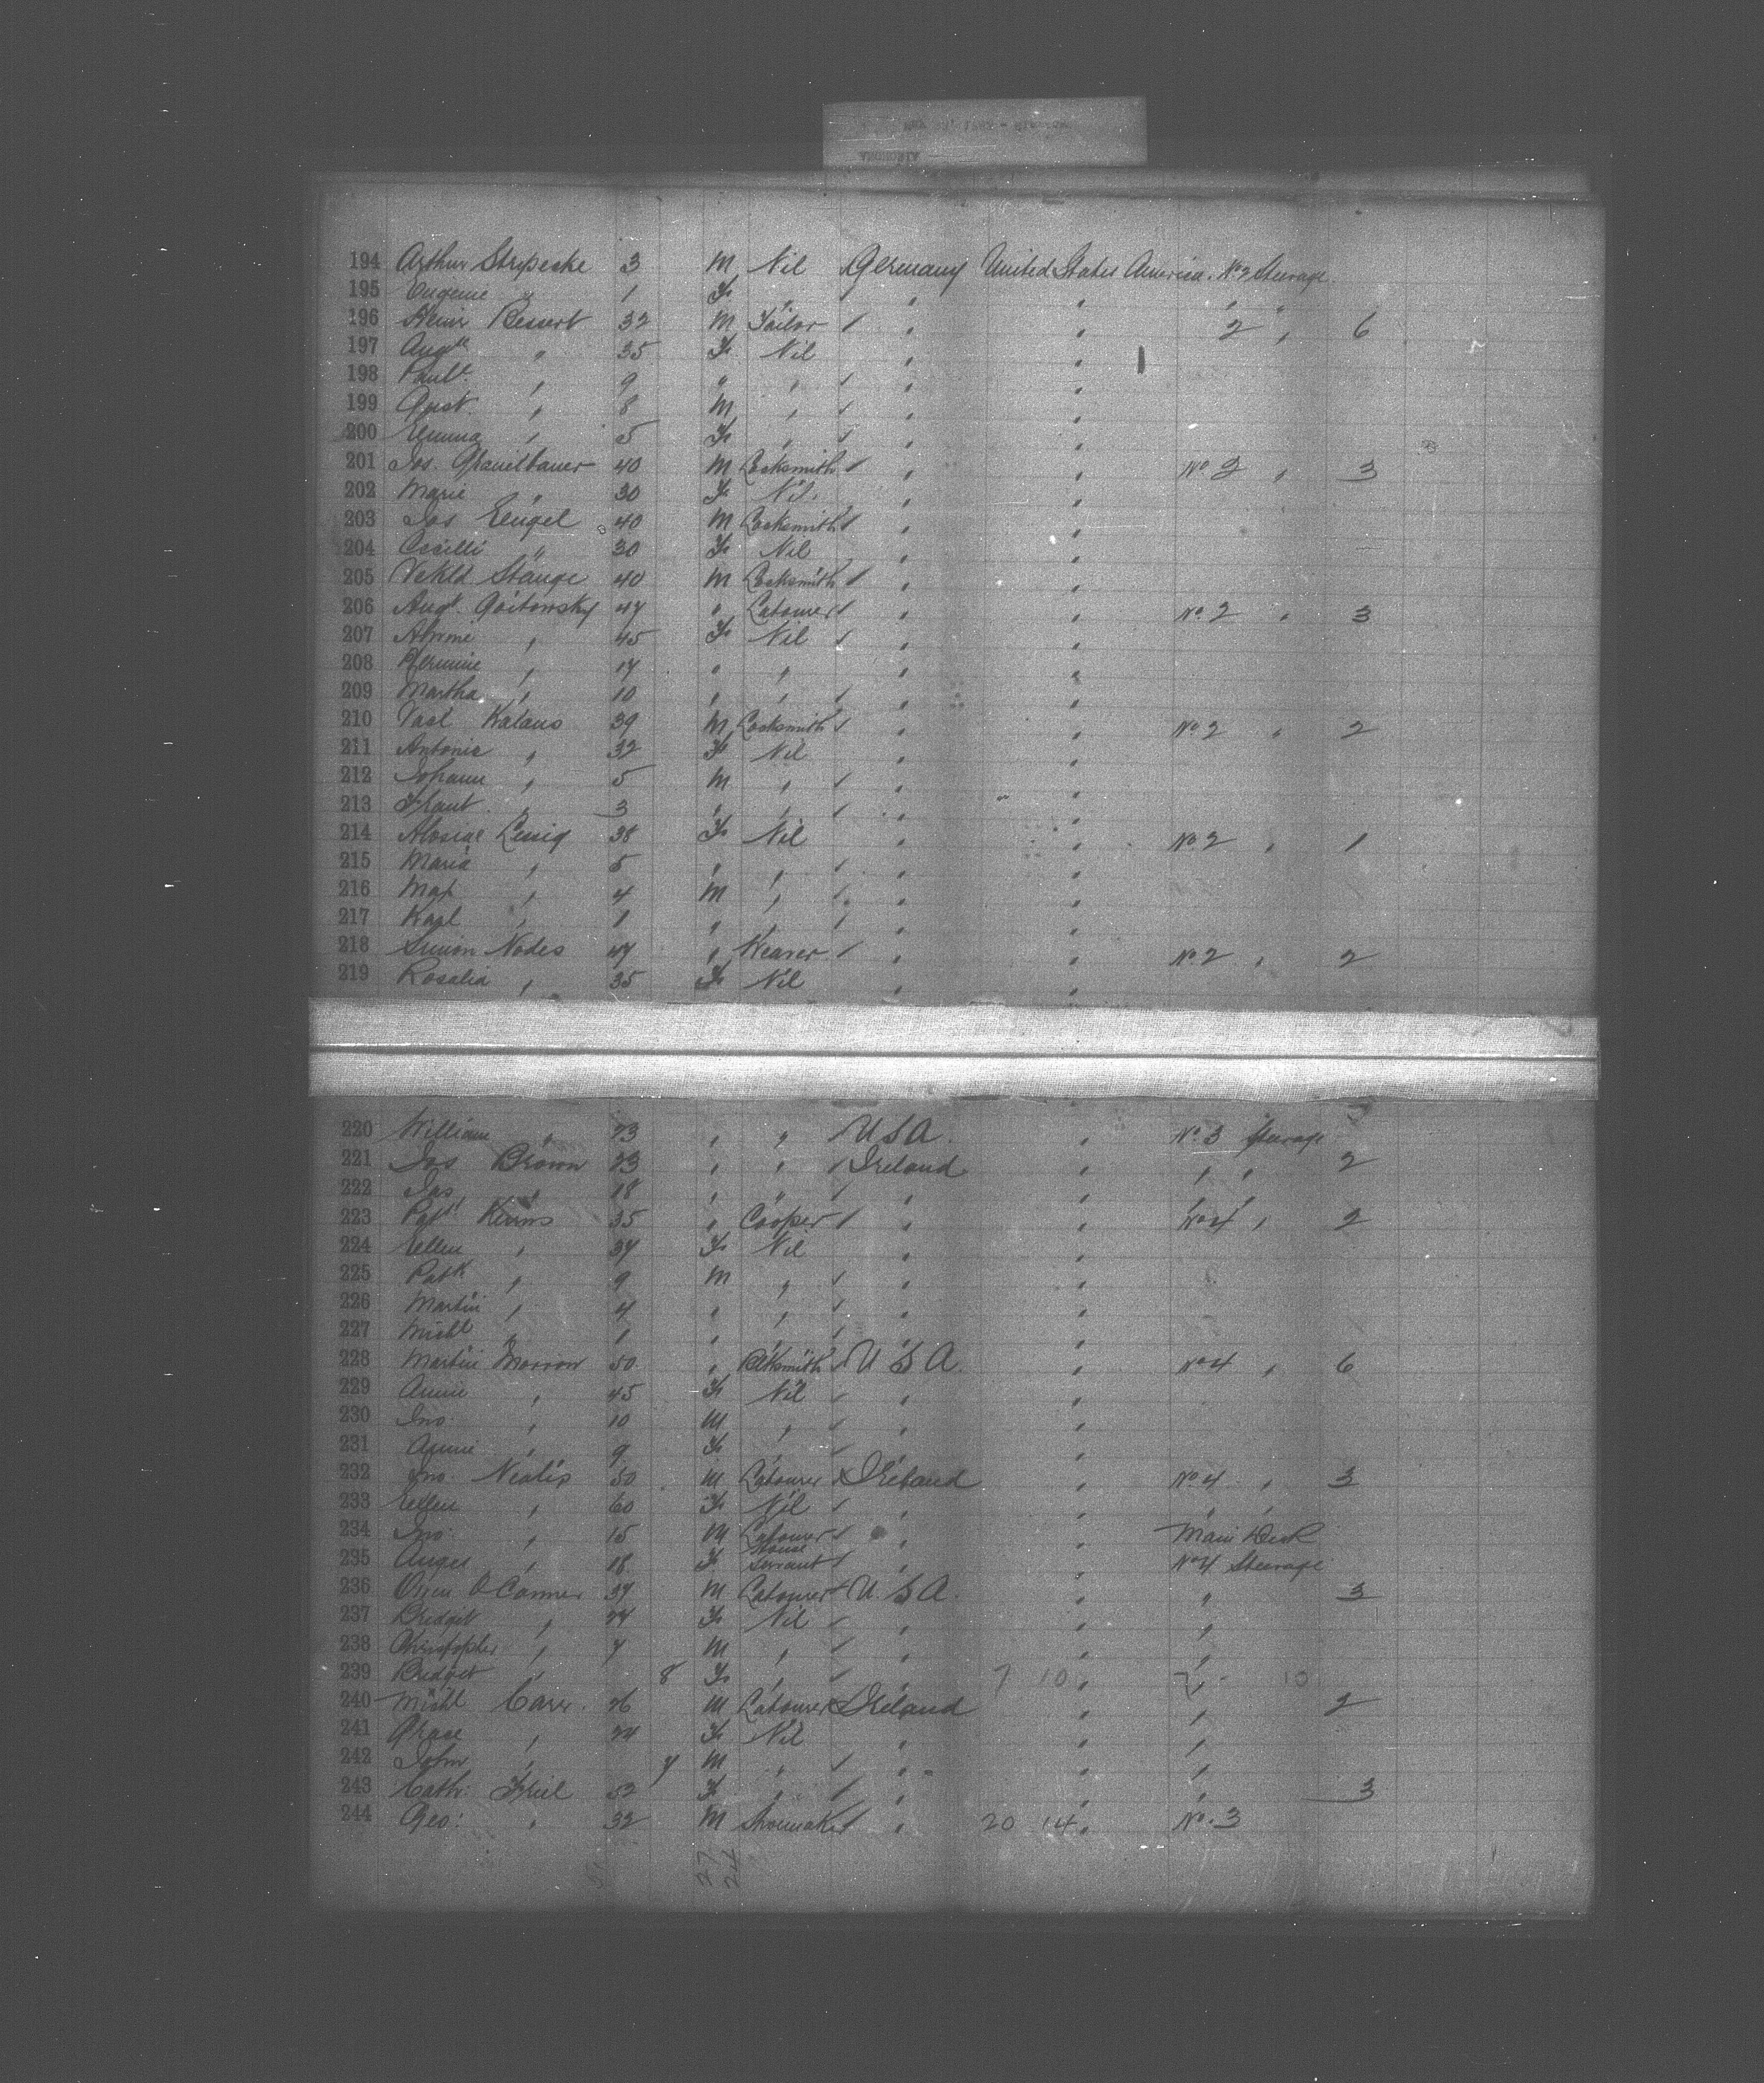 194 Arthur Stripecke 3 M Nil Germany United States America. No 2 Steerage
195 Eugenie " 1 F " " " " "
196 Heinr Ressert 32 M Tailor " " 2 " 6
197 Augte " 35 F Nil " "
198 Paule " 9 " " " "
199 Gust " 8 M " " "
200 Emma " 5 F " " "
201 Jos. 40 M Locksmith " " No 2 " 3
202 Marie " 30 F Nil " "
203 Jos Engel 40 M Locksmith " "
204 Cecilli " 30 F Nil " "
205 Stange 40 M Locksmith " "
206 Augt. Goitowsky 47 " Labourer " " No 2 " 3
207 " 45 F Nil " "
208 Hermine " 17 " " " "
209 Martha " 10 " " " "
210 Vasl Kalaus 39 M Locksmith " " No 2 " 2
211 Antonia " 32 F Nil " "
212 Johann " 5 M " " "
213 " 3 " " " "
214 38 F Nil " " No 2 " 1
215 Maria " 5 " " " "
216 Max " 4 M " " "
217 Karl " 1 " " " "
218 Simon Nodes 47 " Weaver " " No 2 " 2
219 Rosalia " 35 F Nil " "
220 William " 23 " " USA. " No 3 Steerage
221 Jas Brown 23 " " Ireland " " " 2
222 Jas " 18 " " " "
223 Patk Kerins 35 " Cooper " " No 4 " 2
224 Ellen " 34 F Nil " "
225 Patk " 9 M " " "
226 Martin " 4 " " " "
227 Michl " 1 " " " "
228 Martin Morrow 50 " Blksmith U S A. " No 4 " 6
229 Annie " 45 F Nil " "
230 Jno. " 10 M " " "
231 Annie " 9 F " " "
232 Jno. Nealis 50 M Labourer Ireland " No 4 " 3
233 Ellen " 60 F Nil " " " "
234 Jno. " 15 M Labourer " " Main Deck
235 " 18 F House Servant " " No 4 Steerage
236 Owen O Connor 34 M Labourer U S A. " " 3
237 Bridget " 24 F Nil " " "
238 Christopher " 4 M " " " "
239 Bridget " 8 F " " 7 10 " " 10
240 Michl Carr. 26 M Labourer Ireland " " 2
241 Grace " 24 F Nil " " "
242 John " 4 M " " " "
243 Cathr. Friel 52 F " " " " 3
244 Geo: " 32 M Shoemaker " 20 14 " No. 3